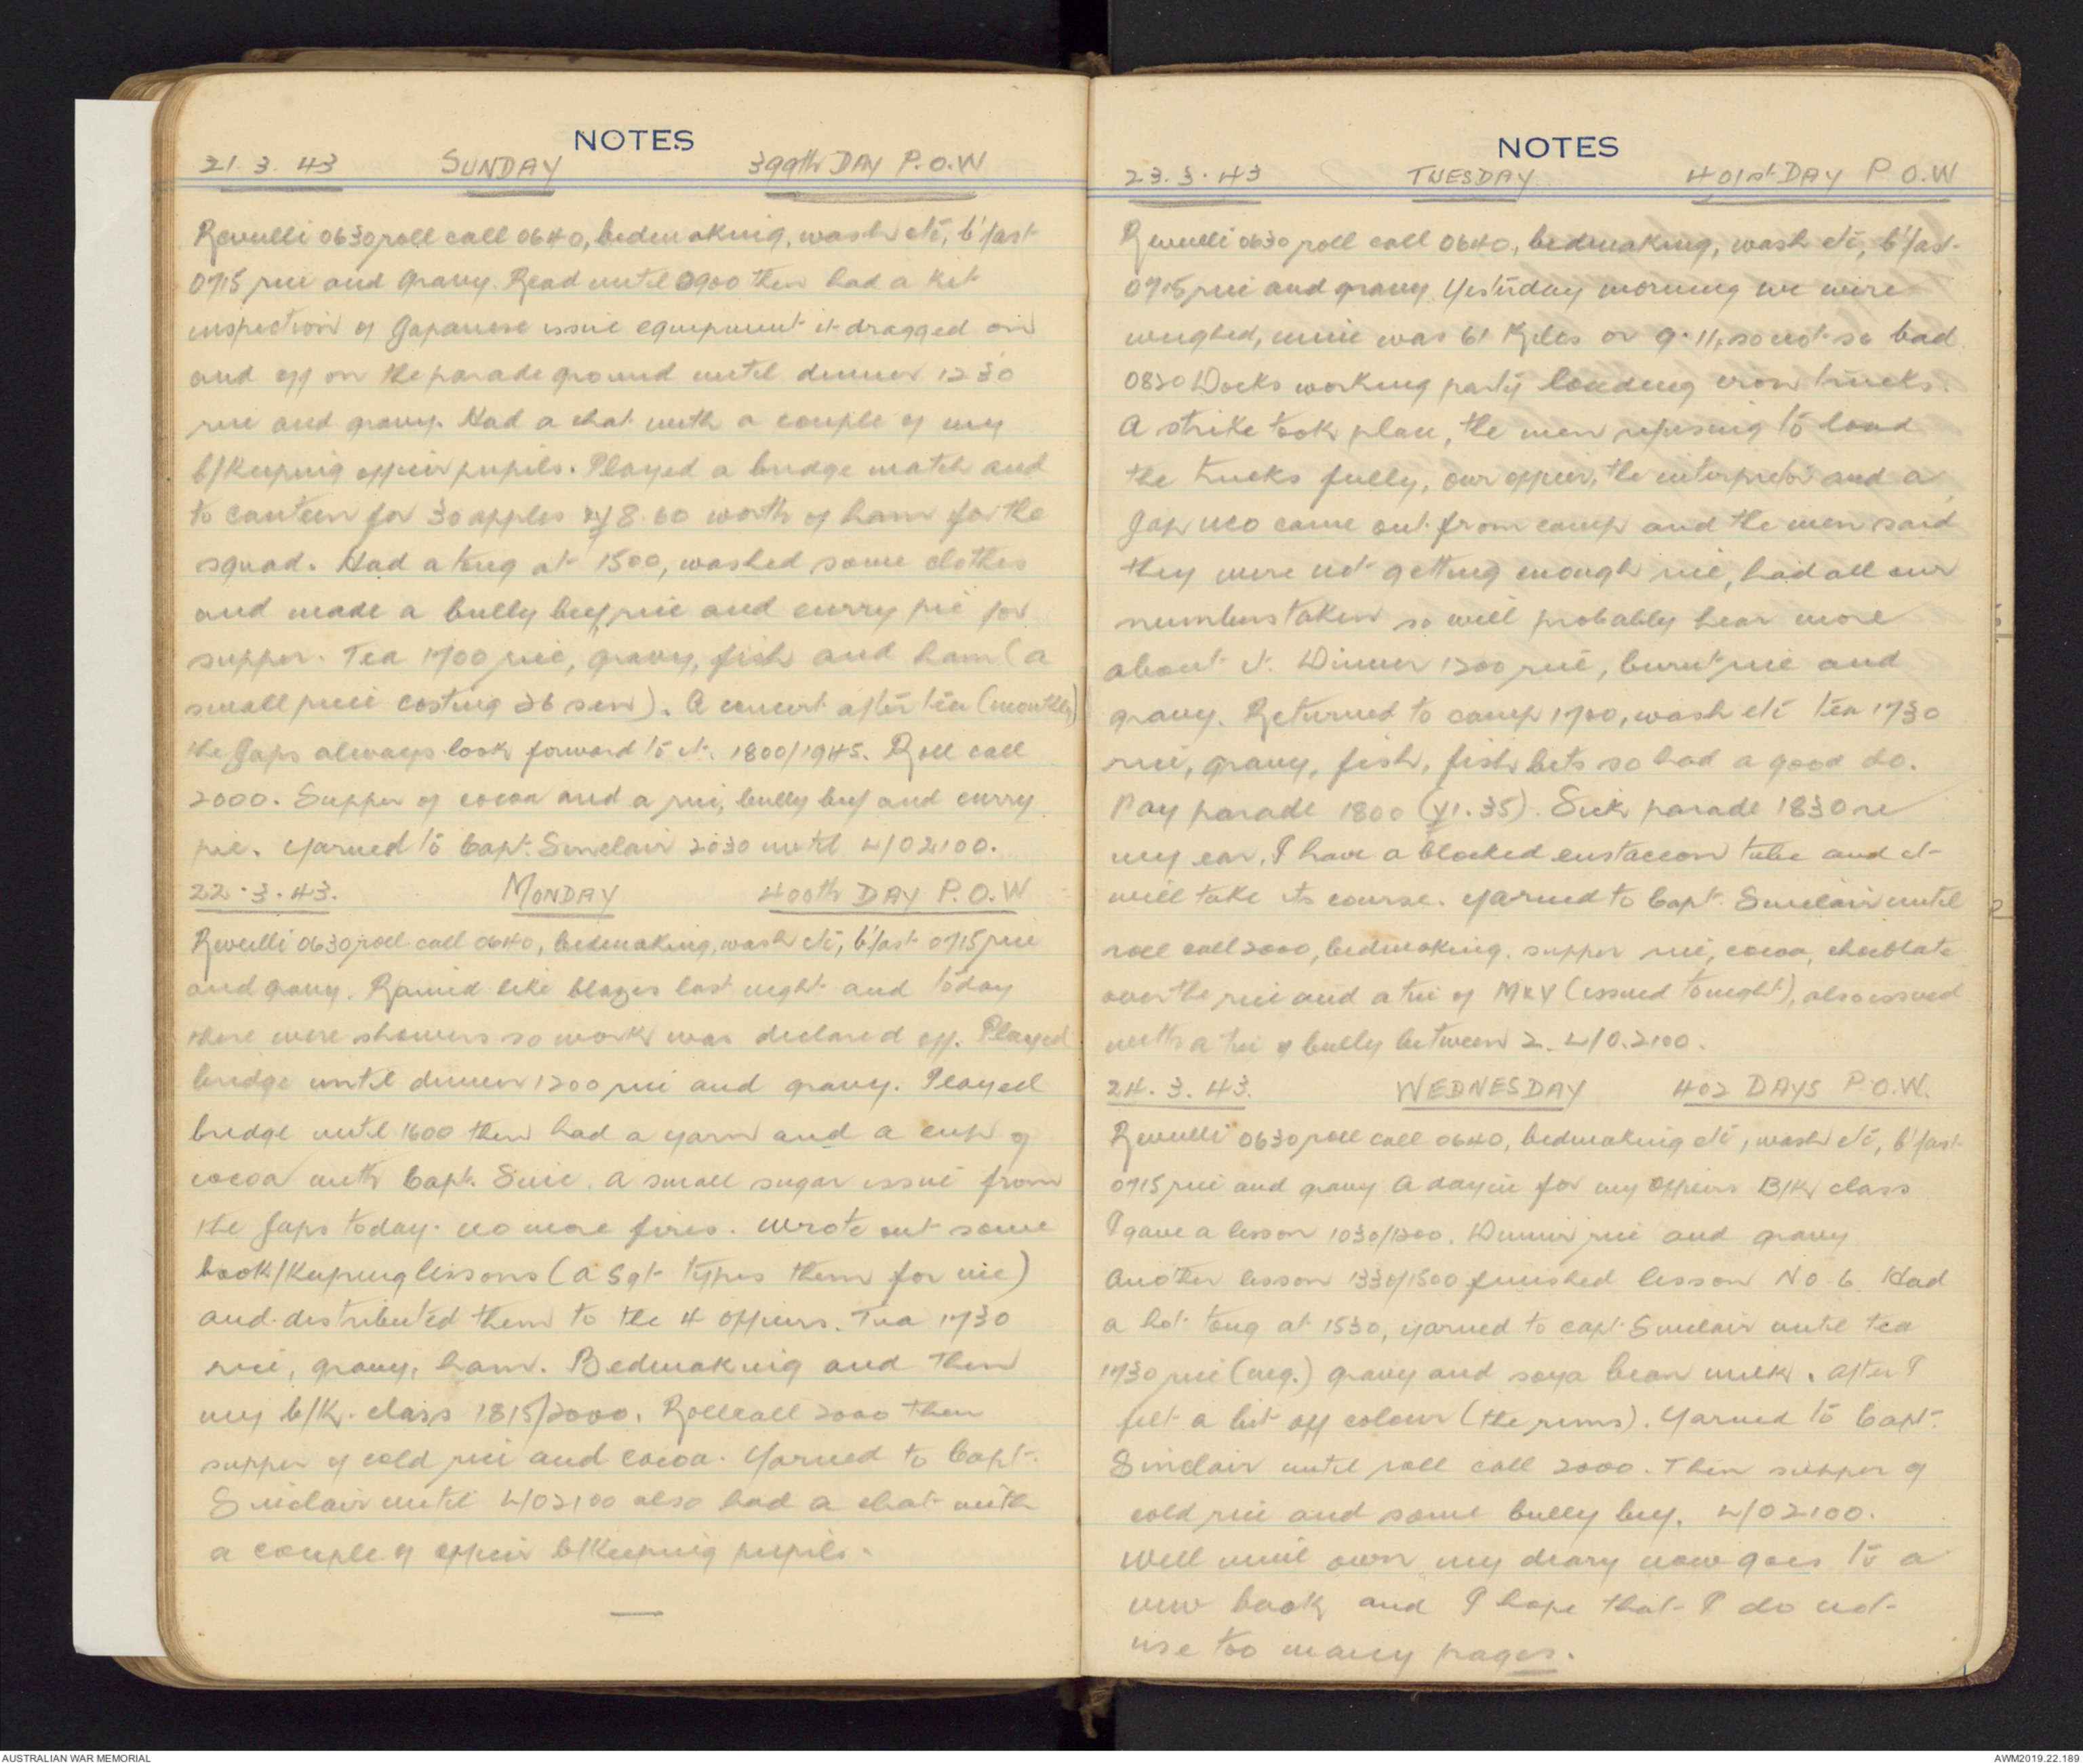 NOTES
21. 3. 43 SUNDAY 399th DAY P.O.W
Reveille 0630 roll call 0640, bedmaking, wash etc, b'fast
0715 rice and gravy. Read until 0900 then had a kit
inspection of Japanese issue equipment it dragged on
and off on the parade ground until dinner 1230
rice and gravy. Had a chat with a couple of my
b/keeping officer pupils. Played a bridge match and
to canteen for 30 apples & ¥8.60 worth of ham for the
squad. Had a tong at 1500, washed some clothes
and made a bully beef, rice and curry pie for
supper. Tea 1700 rice, gravy, fish and ham (a
small piece costing 26 sen). A concert after tea (monthly)
the Japs always look forward to it. 1800/1945. Roll call
2000. Supper of cocoa and a rice, bully beef and curry
pie. Yarned to Capt. Sinclair 2030 until L/O 2100.
22. 3. 43. MONDAY 400th DAY P.O.W
Reveille 0630 roll call 0640, bedmaking, wash etc, b'fast 0715 rice
and gravy. Rained like blazes last night and today
there were showers so work was declared off. Played
bridge until dinner 1200 rice and gravy. Played
bridge until 1600 then had a yarn and a cup of
cocoa with Capt. Sinc. A small sugar issue from
the Japs today. no more fires. Wrote out some
book/keeping lessons (a Sgt types them for me)
and distributed them to the 4 officers. Tea 1730
rice, gravy, ham. Bedmaking and then
my b/k. class 1815/2000. Rollcall 2000 then
supper of cold rice and cocoa. Yarned to Capt.
Sinclair until L/O 2100 also had a chat with
a couple of officer b/keeping pupils.
NOTES
23. 3. 43 TUESDAY 401st DAY P O.W
Reveille 0630 roll call 0640, bedmaking, wash etc, b'fast
0715 rice and gravy. Yesterday morning we were
weighed, mine was 61 Kilos or 9.11, so not so bad.
0830 Docks working party loading iron trucks.
A strike took place, the men refusing to load
the trucks fully, our officer, the interpreter and a
Jap NCO came out from camp and the men said
they were not getting enough rice, had all our
numbers taken so will probably hear more
about it. Dinner 1200 rice, burnt rice and
gravy. Returned to camp 1700, wash etc tea 1730
rice, gravy, fish, fish bits so had a good do.
Pay parade 1800 (¥1.35). Sick parade 1830 re
my ear, I have a blocked eustaceon tube and it
will take its course. Yarned to Capt. Sinclair until
roll call 2000, bedmaking. supper rice, cocoa, chocolate
over the rice and a tin of M & V (issued tonight), also issued
with a tin of bully between 2. L/O. 2100.
24. 3. 43. WEDNESDAY 402 DAYS P.O.W.
Reveille 0630 roll call 0640, bedmaking etc, wash etc, b'fast
0715 rice and gravy A day in for my Officers B/K class
I gave a lesson 1030/1200. Dinner rice and gravy
Another lesson 1330/1500 finished lesson No. 6. Had
a hot tong at 1530, yarned to Capt Sinclair until tea
1730 rice (neg.) gravy and soya bean milk. After I
felt a bit off colour (the runs). Yarned to Capt.
Sinclair until roll call 2000. Then supper of
cold rice and some bully beef. L/O 2100.
Well mine own my diary now goes to a
new book and I hope that I do not
use too many pages.
AUSTRALIAN WAR MEMORIAL AWM2019.22.189